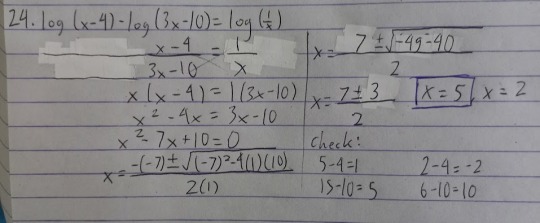 24. log (x-4) - log (3x-10) = log (1/x)
x-4/3x-10 = 1/x
x (x-4) = 1(3x-10)
x² - 4x = 3x-10
x² - 7x + 10 = 0
x = -(-7) ± √(-7)²-4(1)(10) / 2(1)
x = 7 ± √-49-40 / 2
x = 7 ± 3 / 2 x = 5, x = 2
check:
5-4=1 2-4=-2
15-10=5 6-10=10